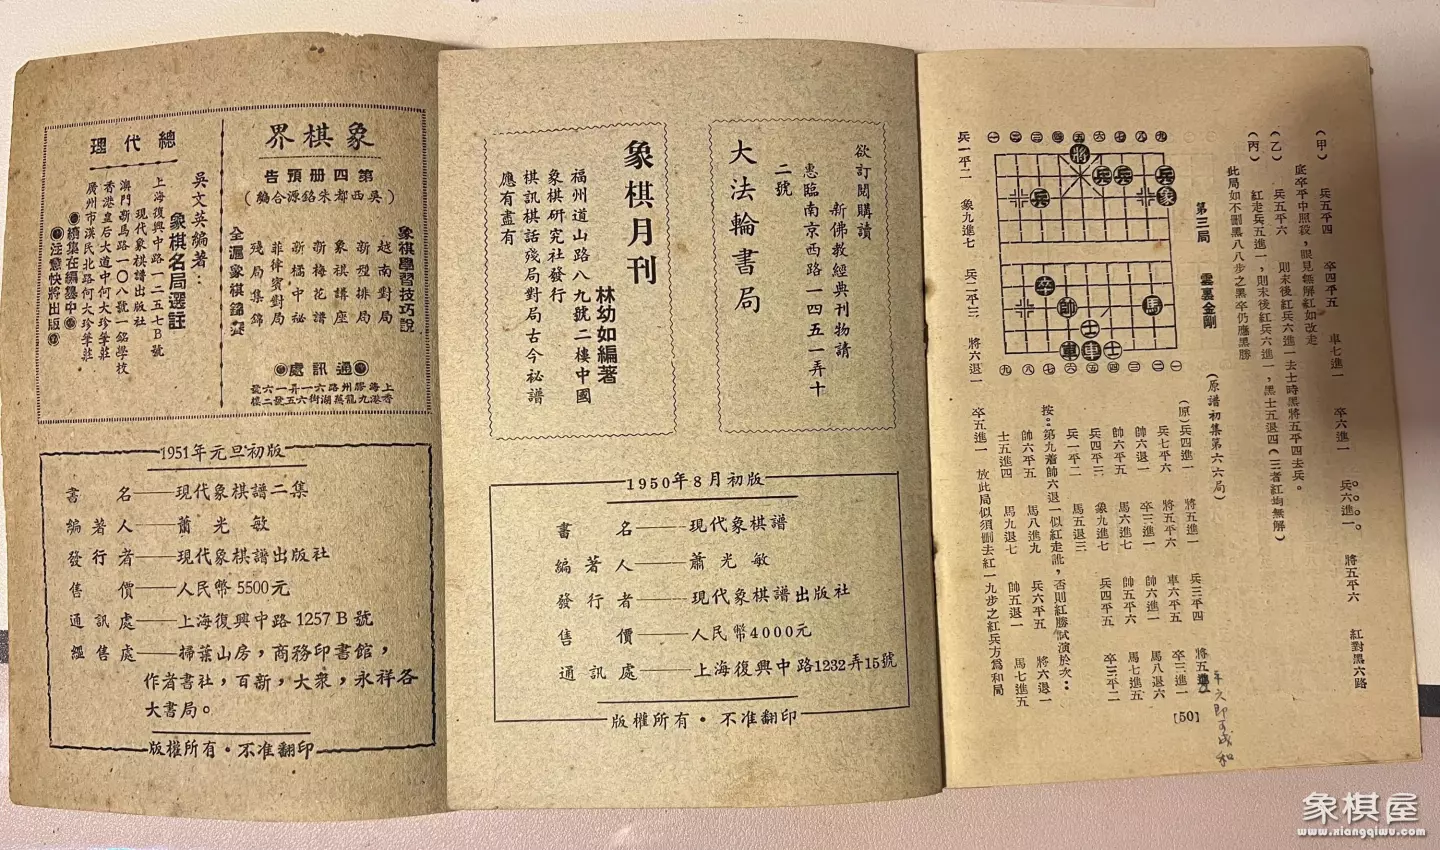 象棋界
第四册預告
(吳西都朱銘源合編)
象棋學習技巧說
越南對局
新型排局
象棋講座
新梅花譜
新橘中秘
菲律賓對局
殘局集錦
全滬象棋錦賽
通訊處
上海膠州路六一弄一六號
總代理
吳文英編著：
象棋名局選註
現代象棋譜出版社
上海復興中路一二五七B號
澳門新馬路一〇八號一銘學校
香港皇后大道中何大珍筆莊
廣州市漢民北路何大珍筆莊
續集在編纂中
注意快將出版
1951年元旦初版
書名——現代象棋譜二集
編著人——蕭光敏
發行者——現代象棋譜出版社
售價——人民幣5500元
通訊處——上海復興中路1257B號
經售處——掃葉山房，商務印書館，
作者書社，百新，大衆，永祥各
大書局。
版權所有・不准翻印
欲訂閱購讀
新佛教經典刊物請
惠臨南京西路一四五一弄十
二號
大法輪書局
象棋月刊
林幼如編著
福州道山路八九號二樓中國
象棋研究社發行
棋訊棋話殘局對局古今秘譜
應有盡有
1950年8月初版
書名——現代象棋譜
編著人——蕭光敏
發行者——現代象棋譜出版社
售價——人民幣4000元
通訊處——上海復興中路1232弄15號
版權所有・不准翻印
(甲) 兵五平四 卒四平五 車七進一 卒六進一 兵六進一 將五平六 紅對黑六路
底卒平中照殺，眼見無解紅如改走
(乙) 兵五平六 則末後紅兵六進一去士時黑將五平四去兵。
(丙) 紅走兵五進一，則末後紅兵六進一，黑士五退四(三者紅均無解)
此局如不删黑八八步之黑卒仍應黑勝
第三局 雲裏金剛 (原譜初集第六六局)
一 二 三 四 五 六 七 八 九
將
兵 兵 兵
兵 象
卒 帥 馬
士
車 車 士
九 八 七 六 五 四 三 二 一
(原)兵四進一 將五進一 兵三平四 將五進一
兵七平六 將五平六 車六平五 卒三進一
帥六退一 卒三進一 帥六進一 馬八退六
帥六平五 馬六進七 帥五平六 馬七進五
兵四平三 象九進七 兵四平五 卒三平二
兵一平二 馬五退三
按：第九着帥六退一似紅走訛，否則紅勝試演於次：
帥六平五 馬八進九 兵六平五 將六退一
士五進四 馬九退七 帥五退一 馬七進五
兵一平二 象九進七 兵二平三 將六退一 卒五進一 放此局似須删去紅一九步之紅兵方爲和局
[50]
即可成和
象棋屋
www.xiangqiwu.com